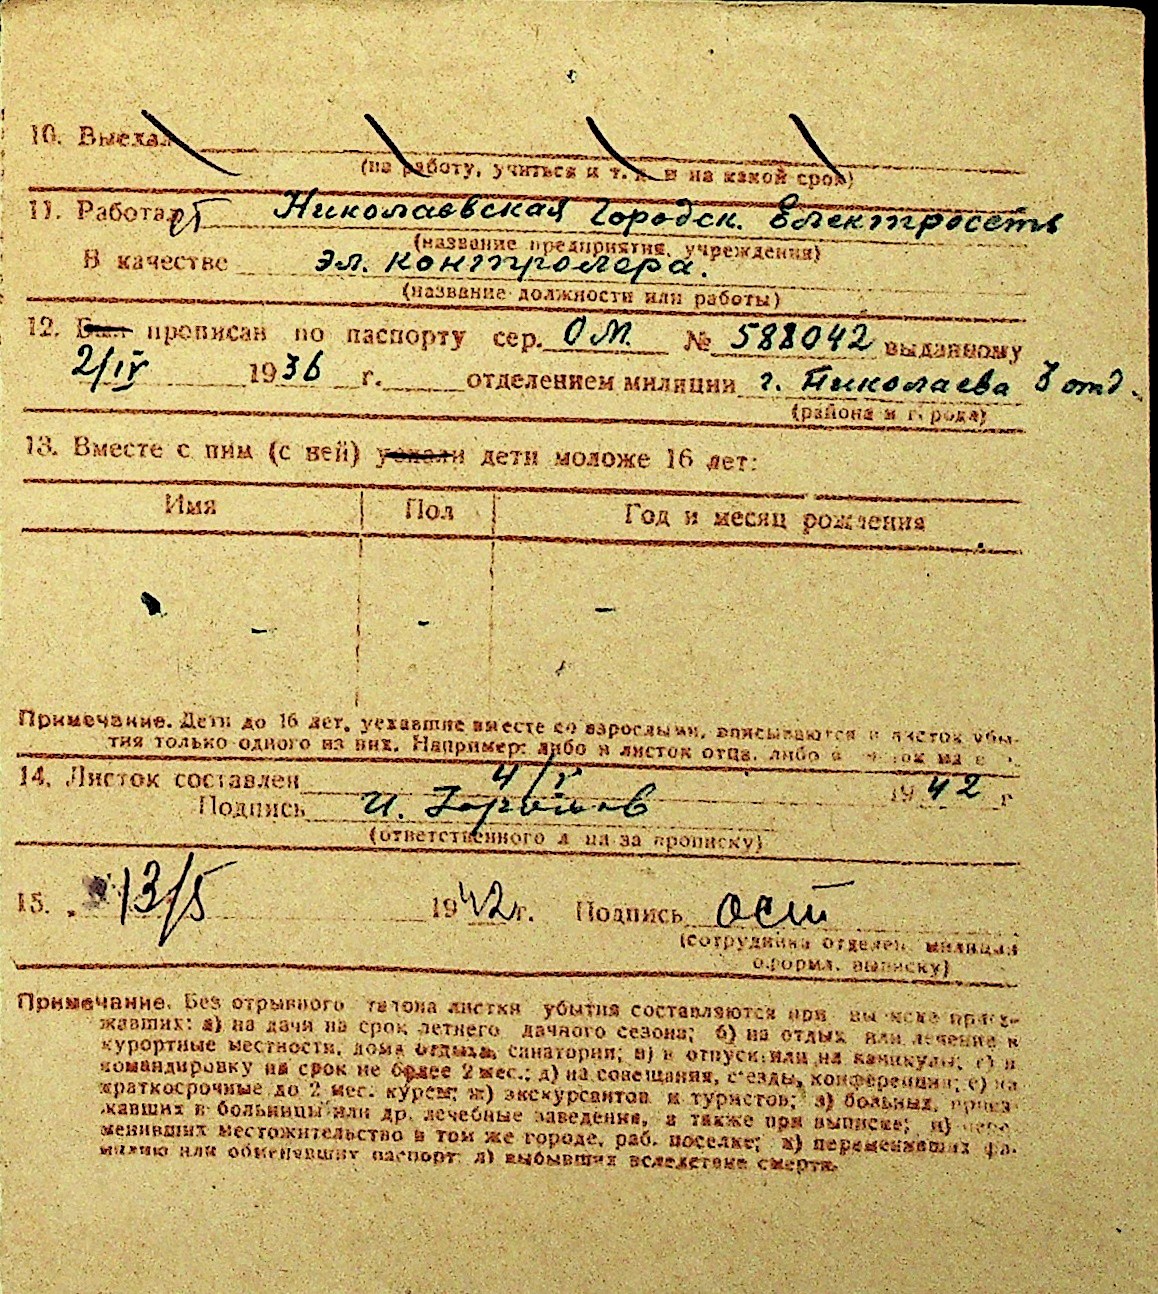 10. Выехал
(на работу, учиться и т. д. и на какой срок)
11. Работает Николаевская Городск. Електросеть
(название предприятия, учреждения)
В качестве эл. контролера.
(название должности или работы)
12. Был прописан по паспорту сер. ОМ. № 588042 выданному
2/IV 1936 г. отделением милиции г. Николаева 3 отд.
(района и города)
13. Вместе с ним (с ней) уехали дети моложе 16 лет:
Имя Пол Год и месяц рождения
- - -
Примечание. Дети до 16 лет, уехавшие вместе со взрослыми, вписываются в листок убы-
тия только одного из них. Например: либо в листок отца, либо в листок
14. Листок составлен 4/V 1942 г
Подпись И.
(ответственного л на за прописку)
15. 13/5 1942 г. Подпись
(сотрудника отделен. милиции
оформл. выписку)
Примечание. Без отрывного талона листки убытия составляются при выписке приез-
жавших: а) на дачи на срок летнего дачного сезона; б) на отдых или лечение в
курортные местности, дома отдыха, санатории; в) в отпуск или на каникулы; г) в
командировку на срок не более 2 мес.; д) на совещания, съезды, конференции; е) на
краткосрочные до 2 мес. курсы; ж) экскурсантов и туристов; з) больных, приез-
жавших в больницы или др. лечебные заведения, а также при выписке; и) пере-
менивших местожительство в том же городе, раб. поселке; к) переменивших фа-
милию или обменявших паспорт; л) выбывших вследствие смерти.